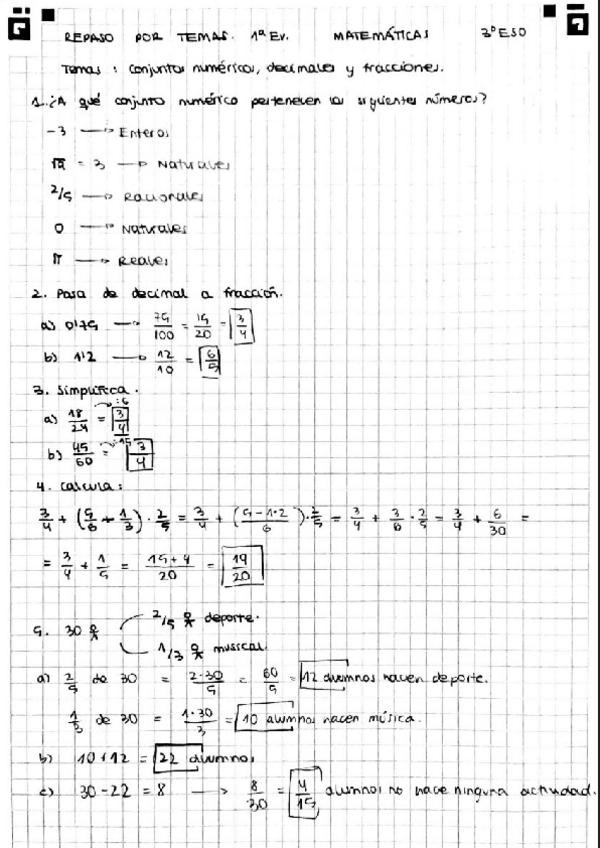 REPASO POR TEMAS. 1ª EV. MATEMÁTICAS 3º ESO
Temas: conjuntos numéricos, decimales y fracciones.
1. ¿A qué conjunto numérico pertenecen los siguientes números?
-3 → Enteros
√9 = 3 → Naturales
2/5 → Racionales
0 → Naturales
π → Reales
2. Pasa de decimal a fracción.
a) 0'75 → 75/100 = 15/20 = 3/4
b) 1'2 → 12/10 = 6/5
3. Simplifica.
a) 18/24 = 3/4 :6
b) 45/60 = 3/4 :15
4. Calcula:
3/4 + (5/6 - 1/3) · 2/5 = 3/4 + (5-1·2/6) · 2/5 = 3/4 + 3/6 · 2/5 = 3/4 + 6/30 =
= 3/4 + 1/5 = 15+4/20 = 19/20
5. 30 2/5 deporte.
1/3 musical.
a) 2/5 de 30 = 2·30/5 = 60/5 = 12 alumnos hacen deporte.
1/3 de 30 = 1·30/3 = 10 alumnos hacen música.
b) 10+12 = 22 alumnos
c) 30-22 = 8 → 8/30 = 4/15 alumnos no hace ninguna actividad.